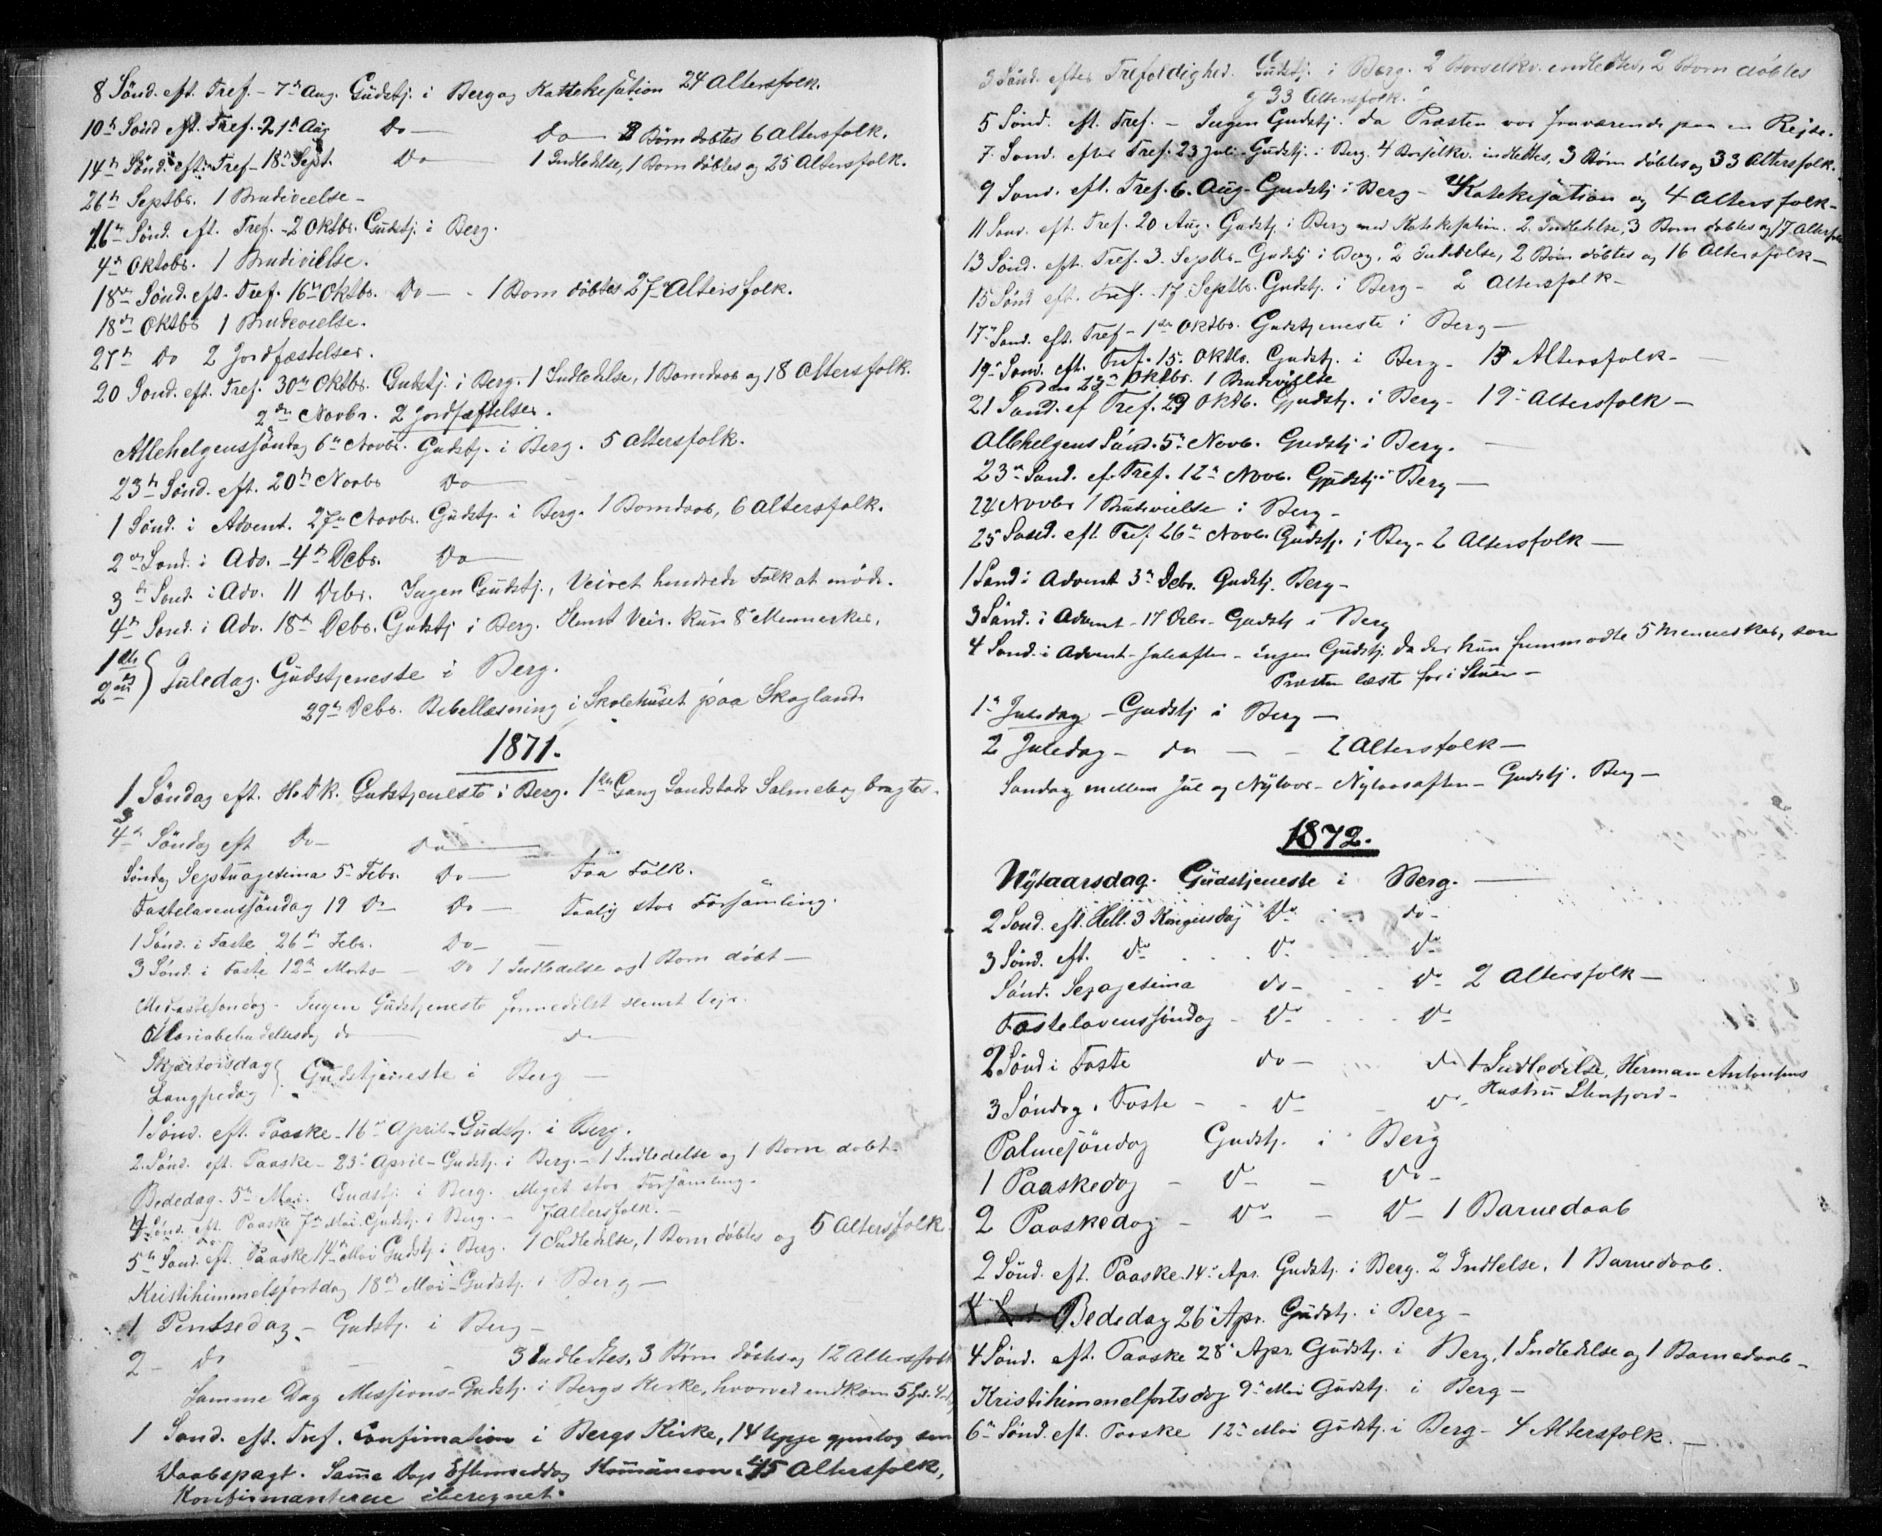 8 Sønd. eft. Tref. - 7de Aug. Gudstj. i Berg og Kattekisation 24 Altersfolk.
10de Sønd eft. Tref. 21de Aug Do — Do — 2 Børn døbtes 6 Altersfolk.
14de Sønd. eft. Tref - 18de Sept. Do — 1 Indledelse, 1 Barn døbtes og 25 Altersfolk.
26de Septbr. 1 Brudevielse -
16de Sønd. eft. Tref. - 2 Oktbr. Gudstj. i Berg.
4de Oktobr. 1 Brudevielse.
18de Sønd. eft. Tref. 16de Oktbr. Do — 1 Barn døbtes 27 Altersfolk.
18de Oktbr 1 Brudevielse.
27de Do 2 Jordfæstelser.
20 Sønd. eft. Tref. 30de Oktbr. Gudstj. i Berg. 1 Indledelse, 1 Barndaab og 18 Altersfolk.
2den Novbr. 2 Jordfæstelser.
Allehelgenssøndag 6te Novbr. Gudstj. i Berg. 5 Altersfolk.
23de Sønd. eft. 20de Novbr Do —
1 Sønd. i Advent. 27de Novbr. Gudstj. i Berg. 1 Barndaab, 6 Altersfolk.
2den Sønd. i Adv. - 4de Debr. Do —
3de Sønd. i Adv. 11 Debr. Ingen Gudstj., Veiret hindrede Folk at møde.
4de Sønd. i Adv. 18de Debr. Gudstj i Berg. Slemt Veir. kun 8 Mennesker.
1ste
2den } Juledag. Gudstjeneste i Berg.
29de Debr. Bibellæsning i Skolehuset paa Skagland.
1871.
1 Søndag eft. H.3.K. Gudstjeneste i Berg. 1ste Gang Landstads Salmebog brugtes.
4de Søndag eft Do — do —
Søndag Septuagesima 5te Febr. Do — Faa Folk.
Fastelavenssøndag 19 Do — Do — Taalig stor Forsamling.
1 Sønd. i Faste 26de Febr. Do —
3 Sønd. i Faste 12te Marts — Do 1 Indledelse og 1 Barn døbt —
Midfastesøndag - Ingen Gudstjeneste formedelst slemt Vejr.
Mariæbebudelsesdag do — do —
Skjærtorsdag
Langfredag } Gudstjeneste i Berg —
1 Sønd. eft. Paaske - 16de April - Gudstj. i Berg.
2. Sønd. eft. Paaske - 23de April - Gudstj. i Berg. - 1 Indledelse og 1 Barn døbt -
Bededag - 5te Mai. Gudstj. i Berg. Meget stor Forsamling -
4 Sønd. eft. Paaske 7de Mai. Gudstj. i Berg. - 7 Altersfolk. -
5te Sønd. eft. Paaske 14de Mai Gudstj. i Berg. 1 Indledelse, 1 Barn døbtes og 5 Altersfolk
Kristihimmelsfartsdag 18de Mai - Gudstj. i Berg —
1 Pintsedag - Gudstj. i Berg -
2 - do — — 3 Indledtes, 3 Børn døbtes og 12 Altersfolk
Samme Dag Missions-Gudstj. i Bergs Kirke, hvorved indkom 5
1 Sønd. eft. Tref. Confirmation i Bergs Kirke, 14 unge gjentog sin
Daabspagt. Samme Dags Eftermiddag Kommunion. 45 Altersfolk,
Konfirmanterne iberegnet.
3 Sønd. efter Trefoldighed. Gudstj. i Berg. 2 Barselkv. indledtes, 2 Barn døbtes
og 33 Altersfolk.
5 Sønd. eft. Tref. - Ingen Gudstj. da Præsten var fraværende paa en Rejse.
7. Sønd. efter Tref. 23 Juli - Gudstj. i Berg. 4 Barselkv. indledtes, 3 Børn døbtes og 33 Altersfolk.
9 Sønd. eft. Tref. 6. Aug - Gudstj i Berg - Katekisation og 4 Altersfolk -
11 Sønd. eft. Tref. 20 Aug. Gudstj. i Berg med Katekisation. 2. Indledelse, 3 Barn døbtes og 17 Altersfolk
13 Sønd. eft. Tref. 3. Septbr - Gudstj i Berg. 2 Indledelse, 2 Børn døbtes og 16 Altersfolk -
15 Sønd eft. Tref. - 17. Septbr. Gudstj. i Berg - 2 Altersfolk -
17de Sønd. eft. Tref - 1ste Oktbr. Gudstjeneste i Berg —
19de Sønd. eft. Tref. 15. Oktbr. Gudstj. i Berg - 13 Altersfolk -
den 23de Oktbr. 1 Brudevielse
21 Sønd. ef Tref. 29 Oktb. Gudstj. i Berg - 19 Altersfolk —
Allehelgens Sønd. 5te Novb. Gudstj i Berg.
23de Sønd. ef. Tref. 12te Novb. Gudstj. i Berg —
24 Novbr 1 Brudevielse i Berg -
25 Sønd. eft Tref. 26de Novbr. Gudstj. i Berg - 2 Altersfolk —
1 Sønd i Advent 3de Debr. Gudstj. Berg -
3 Sønd. i Advent - 17 Debr - Gudstj i Berg
4 Sønd. i Advent - Juleaften - ingen Gudstj. da der kun fremmødte 5 Mennesker, som
Præsten læste for i Stuen -
1te Juledag - Gudstj i Berg —
2 Juledag - do — - 2 Altersfolk —
Søndag mellem Jul og Nytaar - Nytaarsaften - Gudstj. Berg —
1872.
Nytaarsdag. Gudstjeneste i Berg. —
2 Sønd. eft. Hell. 3 Kongersdag Do — do -
3 Sønd. eft. do . . . Do . . Do
Sønd. Sexagesima do - . . do - 2 Altersfolk —
Fastelavenssøndag - Do . . . Do
2 Sønd i Faste do — . . . do 1 Indledelse, Herman Antonsens
Hustru Stenfjord -
3 Søndag i Faste - - Do - Do -
Palmesøndag Gudstj. i Berg
1 Paaskedag - Do — Do -
2 Paaskedag - Do — Do — 1 Barnedaab
2 Sønd. eft. Paaske. 14de Apr. Gudstj. i Berg. 2 Indlelse, 1 Barnedaab.
Bededag 26de Apr. Gudstj. i Berg -
4 Sønd. eft. Paaske 28de Apr. Gudstj. i Berg, 1 Indledelse og 1 Barnedaab -
Kristihimmelfartsdag 9de Mai Gudstj. i Berg -
6te Sønd. eft. Paaske 12te Mai Gudstj. i Berg - 4 Altersfolk. —